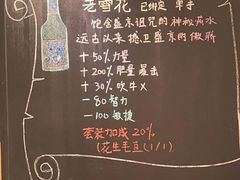 老雪花 已绑定 单手
饱含盛京诅咒的神秘药水
远古以来捍卫盛京的傲骄
+50% 力量
+200% 肥量暴击
+30% 吹牛X
-80 智力
-100 敏捷
套装加成 20%
(花生毛豆(1/1)